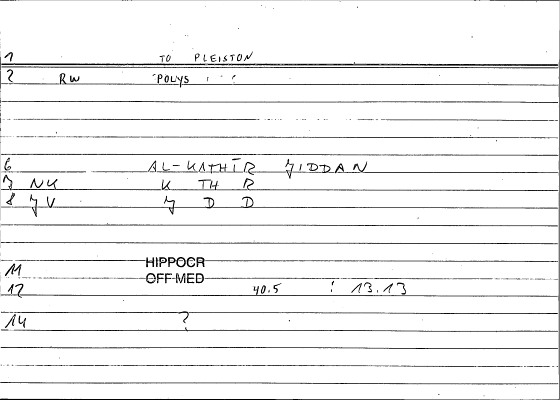 1 TO PLEISTON
2 RW POLYS
6 AL-KATHIR JIDDAN
7 NK K TH R
8 JV J D D
HIPPOCR
11
OFF MED
12 40.5 : 13.13
14 ?